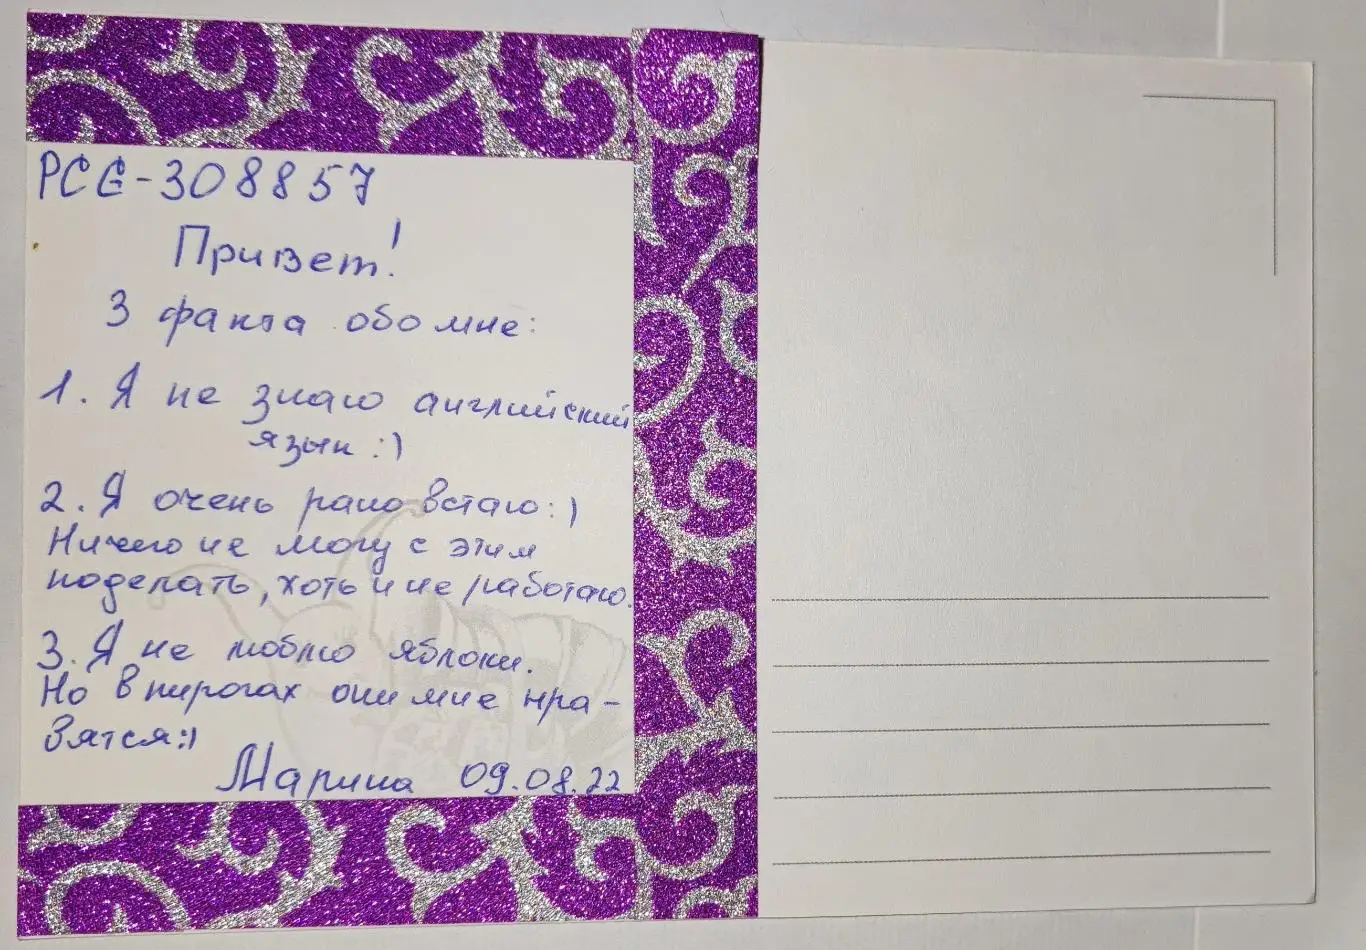 РСЕ-308857
Привет!
3 факта обо мне:
1. Я не знаю английский
язык :)
2. Я очень рано встаю :)
Ничего не могу с этим
поделать, хоть и не работаю.
3. Я не люблю яблоки.
Но в пирогах они мне нра-
вятся :)
Марина 09.08.22